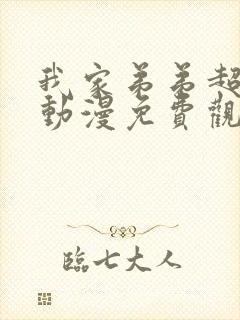 我家弟弟超
動漫免費觀
臨七大人